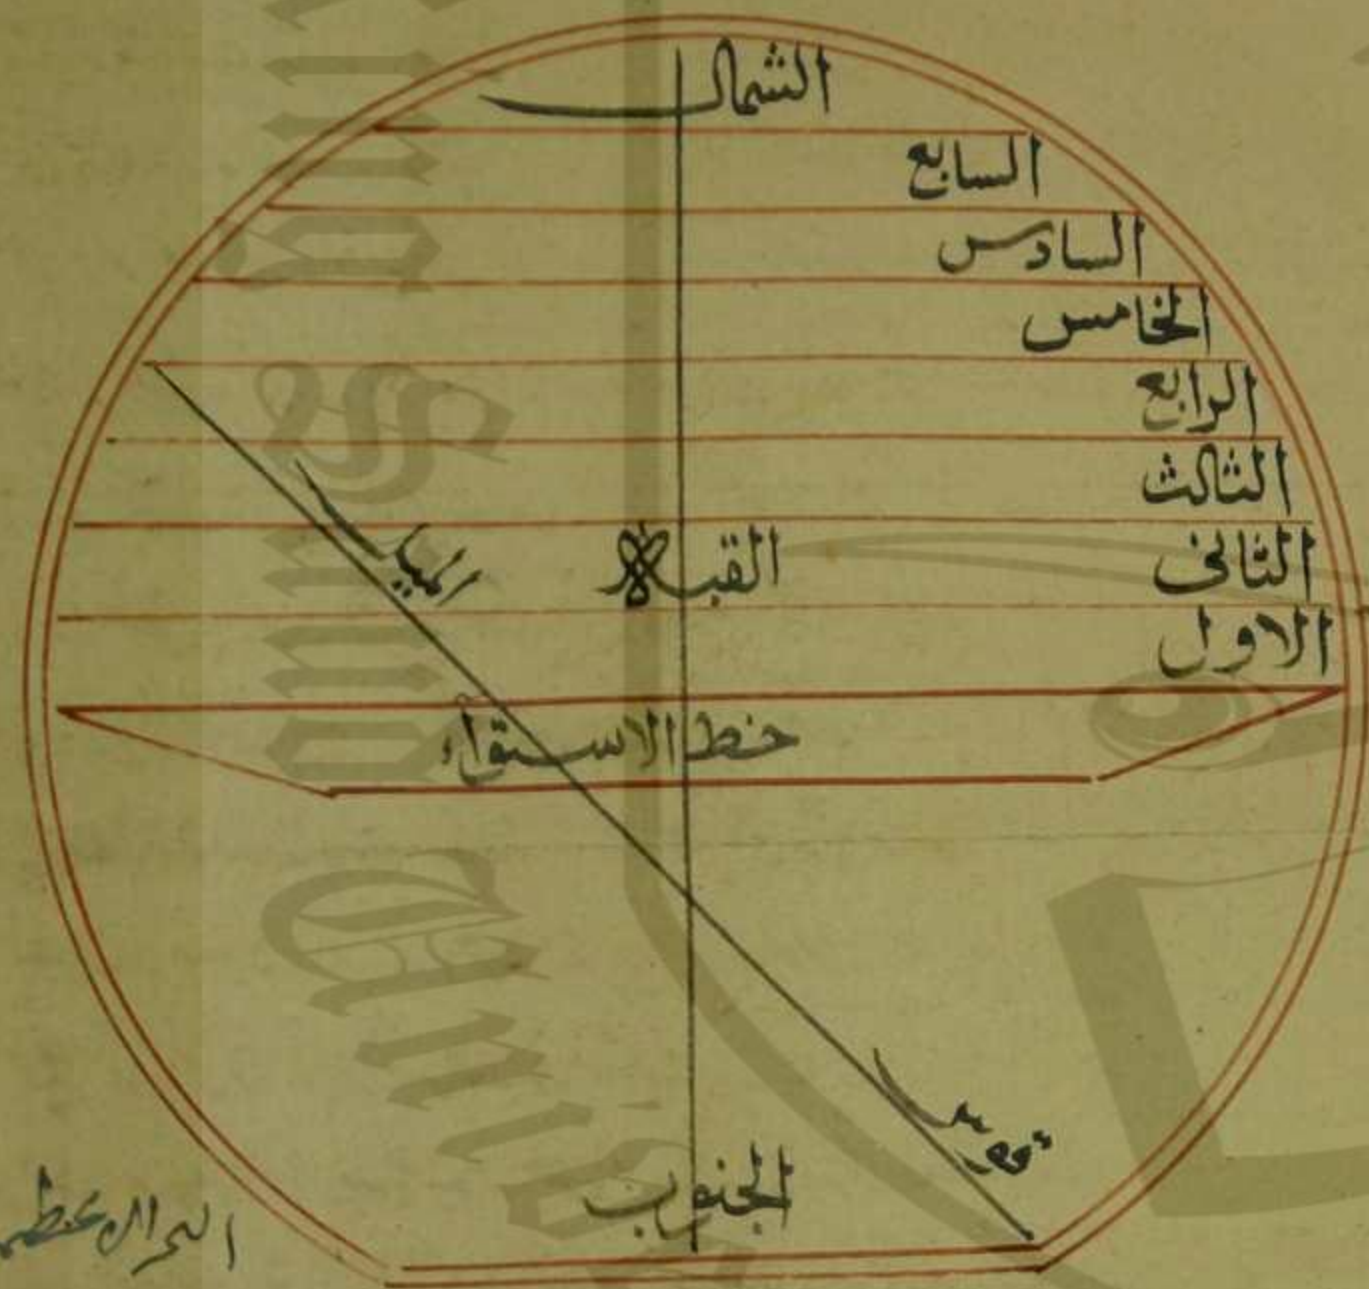 الشمال
السابع
السادس
الخامس
الرابع
الثالث
الثانى
القبلة
الاول
خط الاستواء
قوس
الجنوب
البحر الاعظم